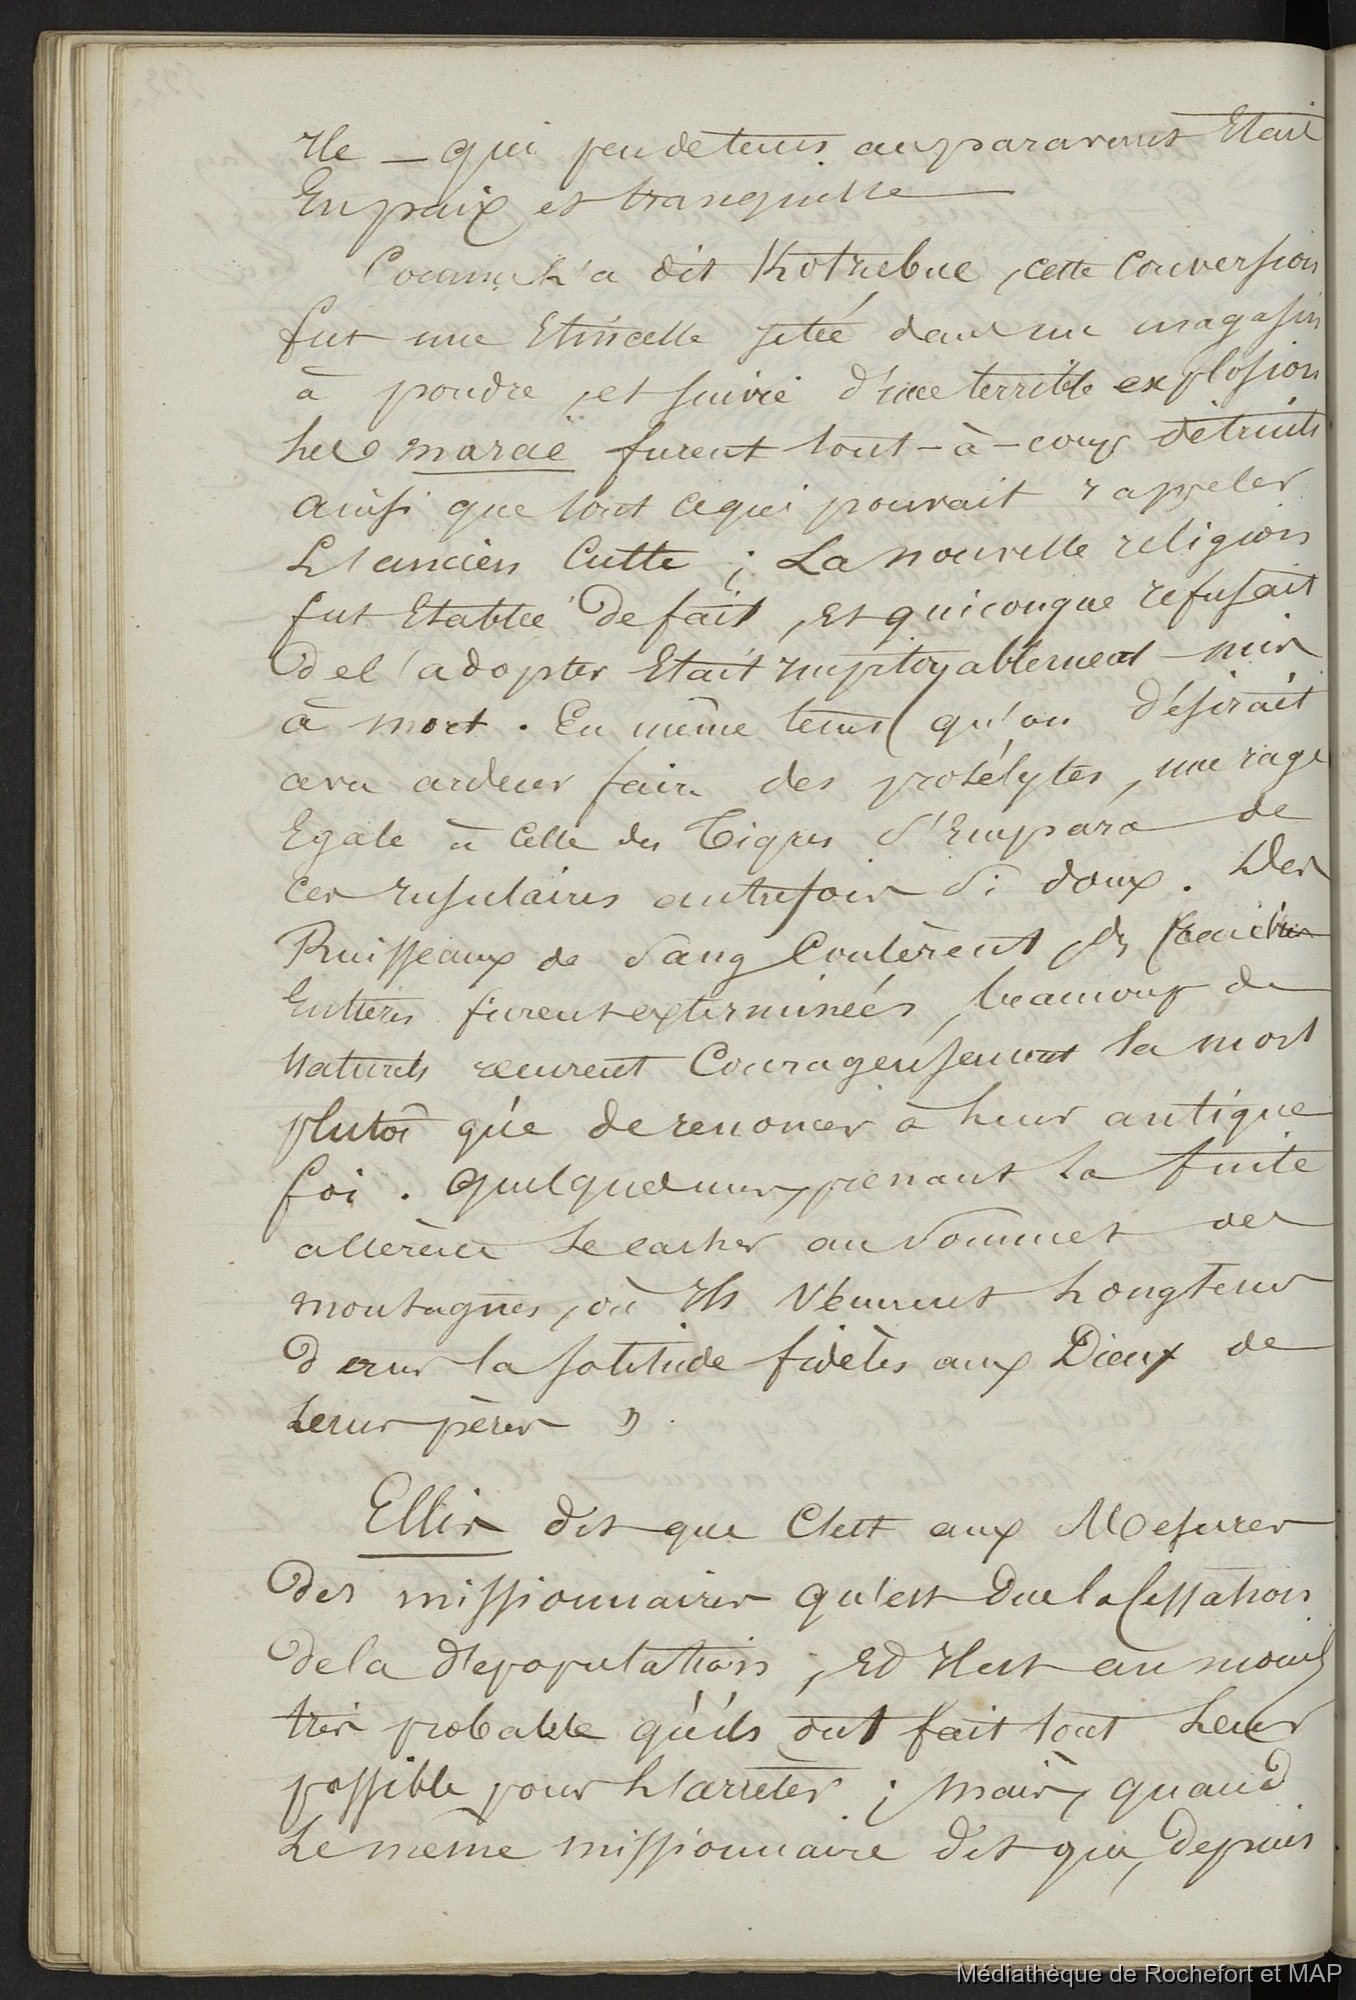 Ile — qui peu de tems auparavant Etait
En paix et tranquille —
Comme L'a dit Kotzebue, cette Conversion
fut une Etincelle jetée dans un magasin
à poudre, et suivie d'une terrible explosion
Les maraë furent tout-à-coup détruits
ainsi que tout ce qui pouvait rappeler
L'ancien Culte ; La nouvelle religion
fut Etablie de fait, et quiconque refusait
de l'adopter Etait impitoyablement mis
à mort. En même tems qu'on désirait
avec ardeur faire des prosélytes, une rage
Egale à celle des Tigres s'Empara de
ces Insulaires autrefois si doux. Des
Ruisseaux de sang Coulèrent, des familles
Entières furent exterminées, beaucoup de
Naturels reçurent Courageusement la mort
plutôt que de renoncer à leur antique
foi. Quelques uns, prenant la fuite
allèrent se cacher au sommet des
montagnes, où Ils Vécurent Longtems
dans la solitude fidèles aux Dieux de
Leurs pères »
Ellis dit que C'est aux Mesures
des missionnaires qu'est Due la Cessation
de la dépopulation ; Et Il est au moins
très probable qu'ils ont fait tout Leur
possible pour L'arrêter ; mais, quand
Le même missionnaire dit que, depuis
Médiathèque de Rochefort et MAP